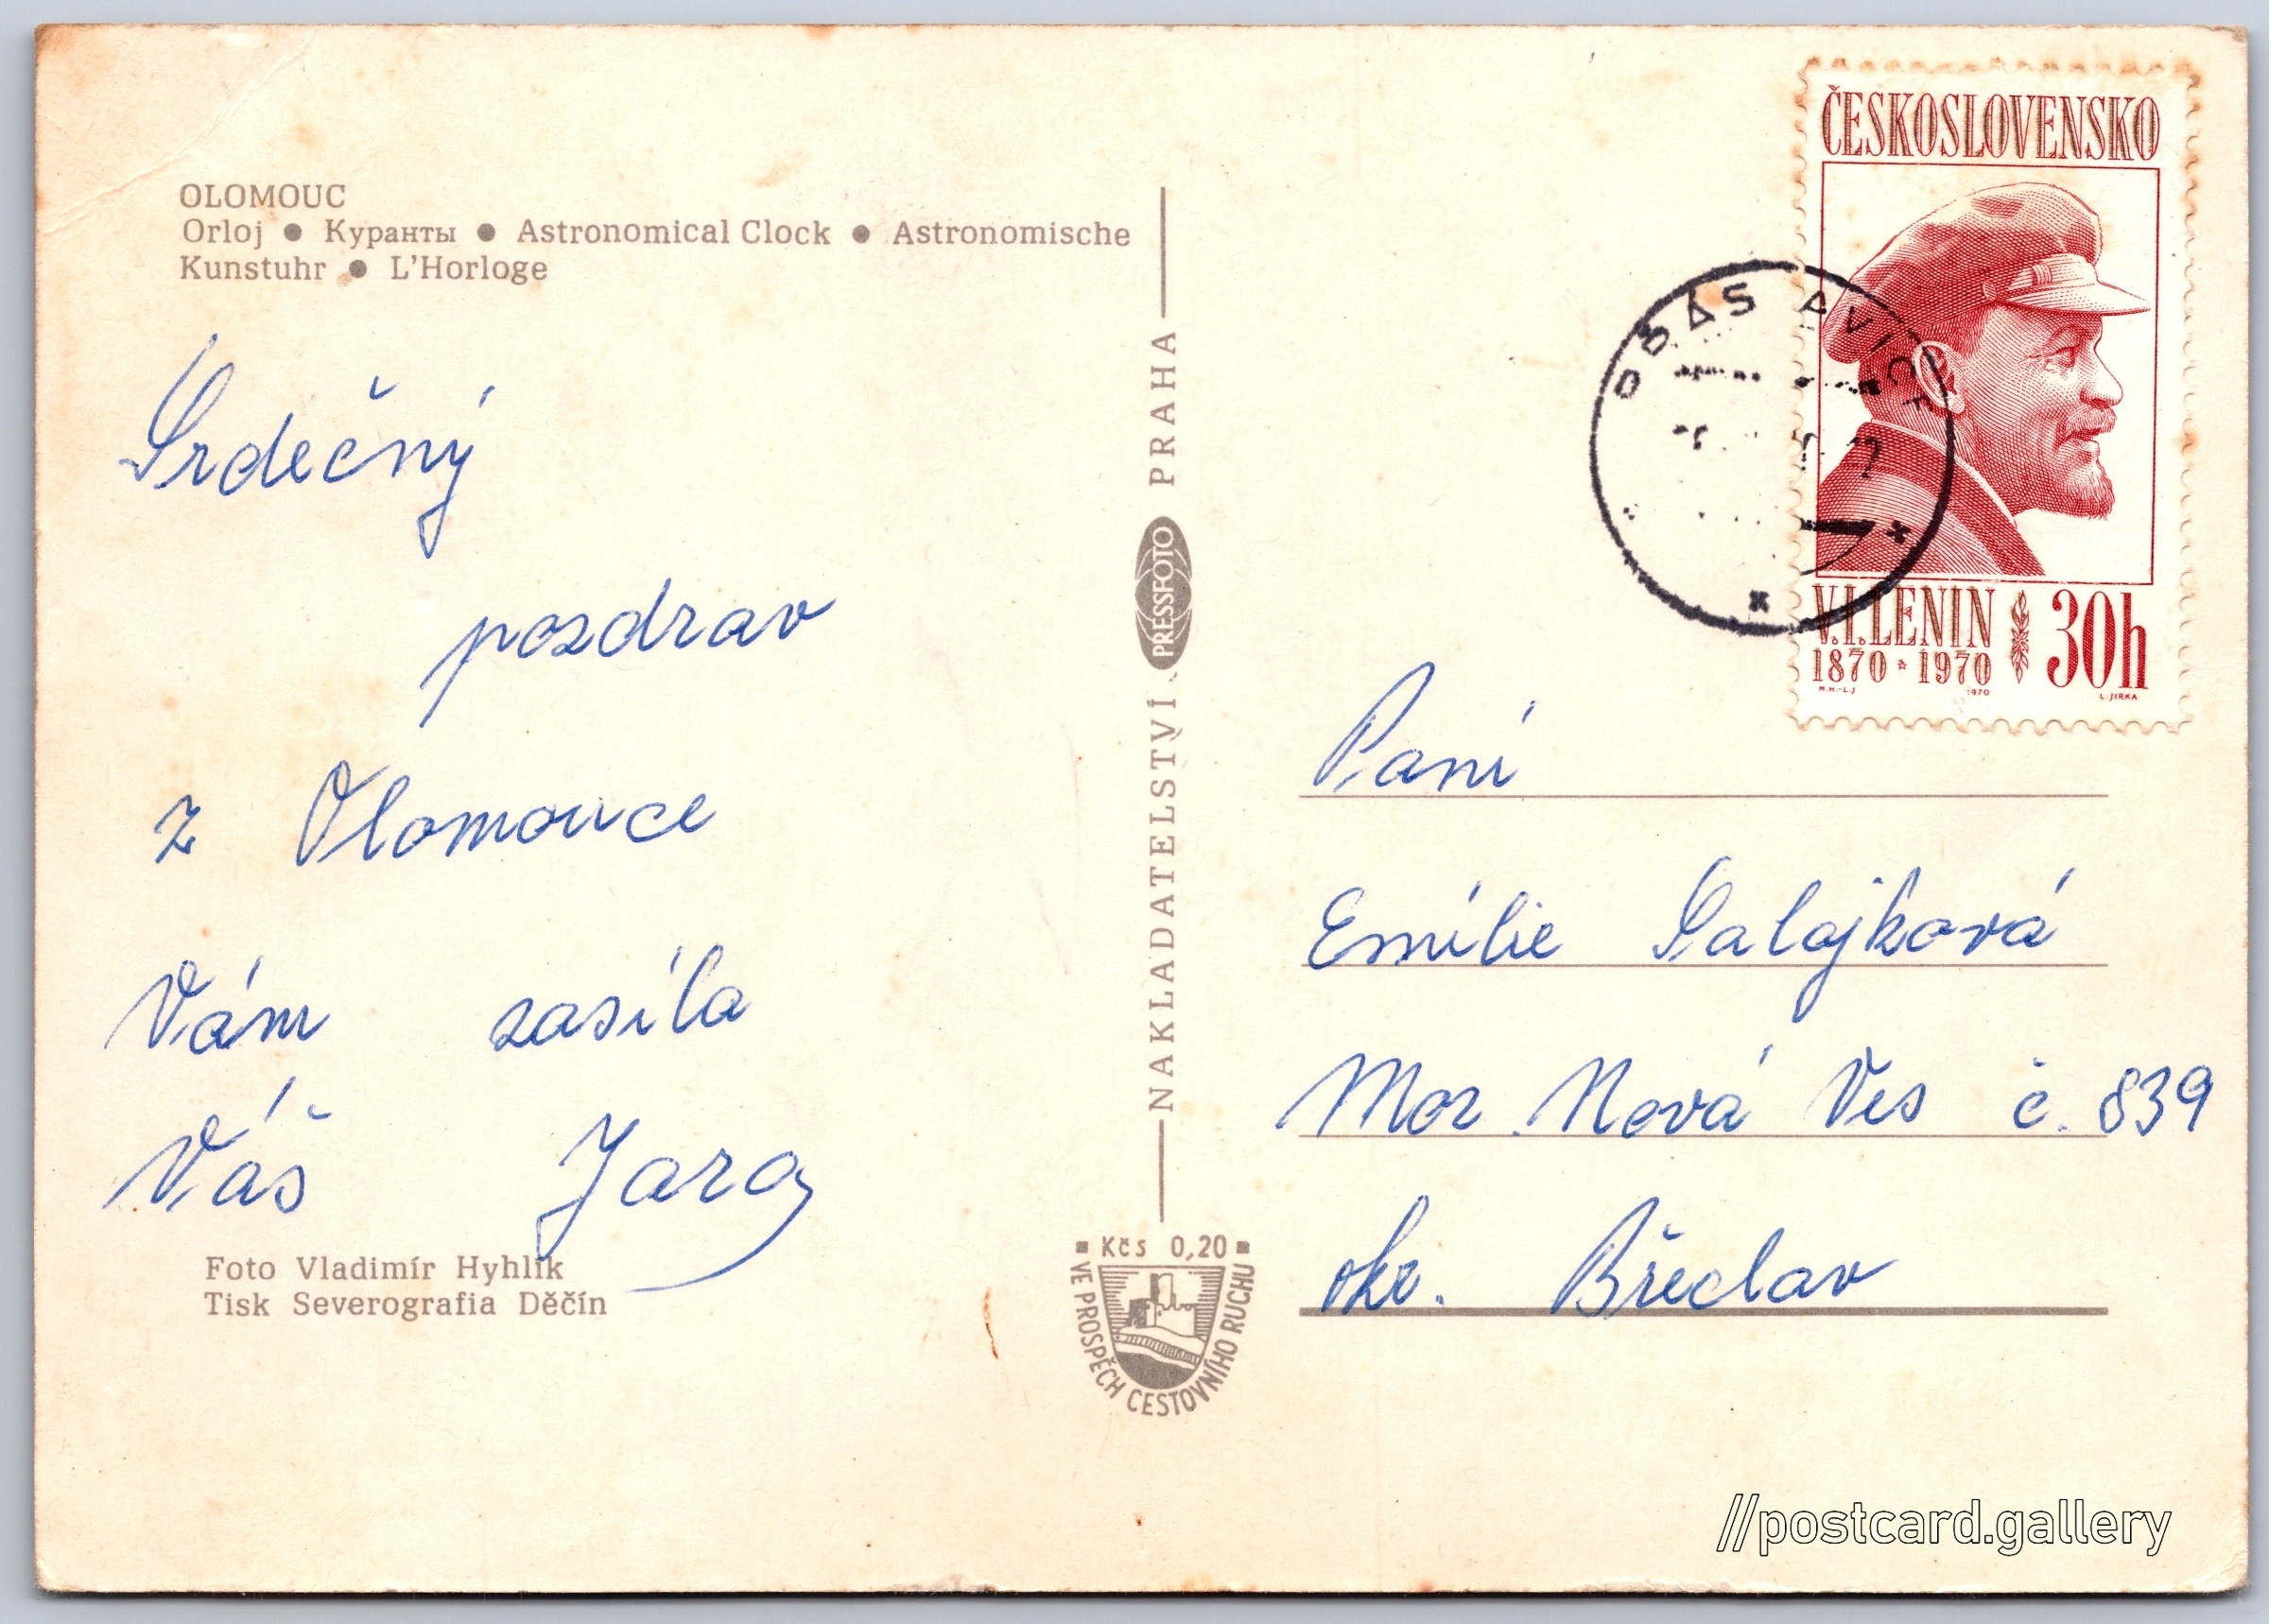 OLOMOUC
Orloj ● Куранты ● Astronomical Clock ● Astronomische
Kunstuhr ● L'Horloge
Srdečný
pozdrav
z Olomouce
Vám zasílá
Váš Jara
Foto Vladimír Hyhlík
Tisk Severografia Děčín
NAKLADATELSTVÍ PRESSFOTO PRAHA
Kčs 0,20
VE PROSPĚCH CESTOVNÍHO RUCHU
ČESKOSLOVENSKO
V.I.LENIN 30h
1870 * 1970
M.H.-L.J 1970 L.JIRKA
Paní
Emílie Salajková
Mor. Nová Ves č. 839
okr. Břeclav
//postcard.gallery